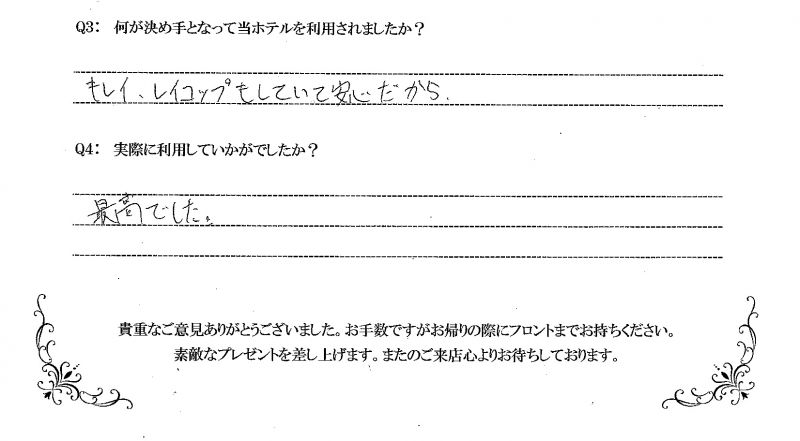 Q3: 何が決め手となって当ホテルを利用されましたか？
キレイ、レイコップもしていて安心だから.
Q4: 実際に利用していかがでしたか？
最高でした。
貴重なご意見ありがとうございました。お手数ですがお帰りの際にフロントまでお持ちください。
素敵なプレゼントを差し上げます。またのご来店心よりお待ちしております。